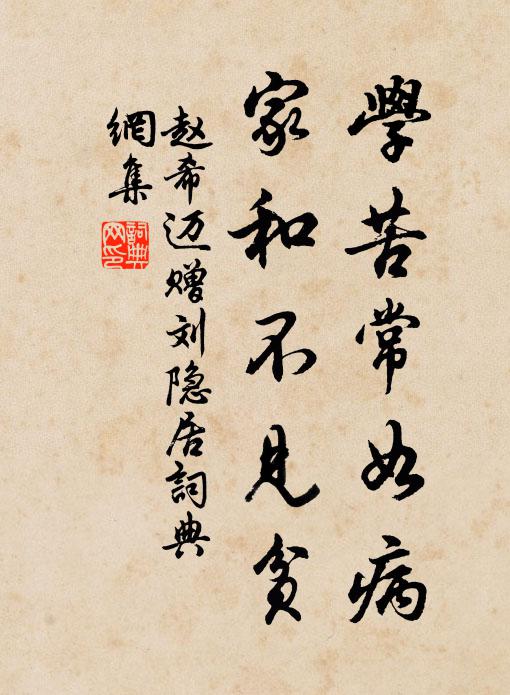 學苦常如病
家和不見貧
赵希迈赠刘隐居詞典
網集
詞典
网印